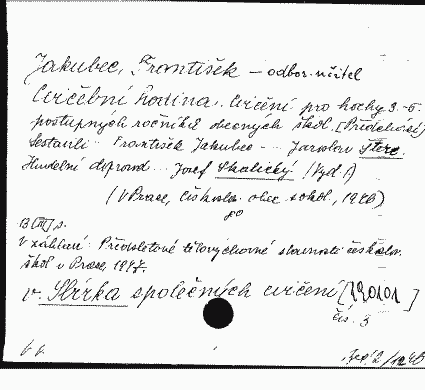 Jakubec, František – odbor. učitel
Cvičební hodina. Cvičení pro hochy 3.-5.
postupných ročníků obecných škol. [Předcvičující]
Sestavili František Jakubec ... Jaroslav
Hudební doprovod ... Josef Skalický (Vyd. 1)
(V Praze, Českoslov. obec sokol., 1946)
8°
13 [III] s.
V záhlaví: Předsletové tělovýchovné slavnosti českoslov.
škol v Praze, 1947.
v. Sbírka společných cvičení [
čís. 3